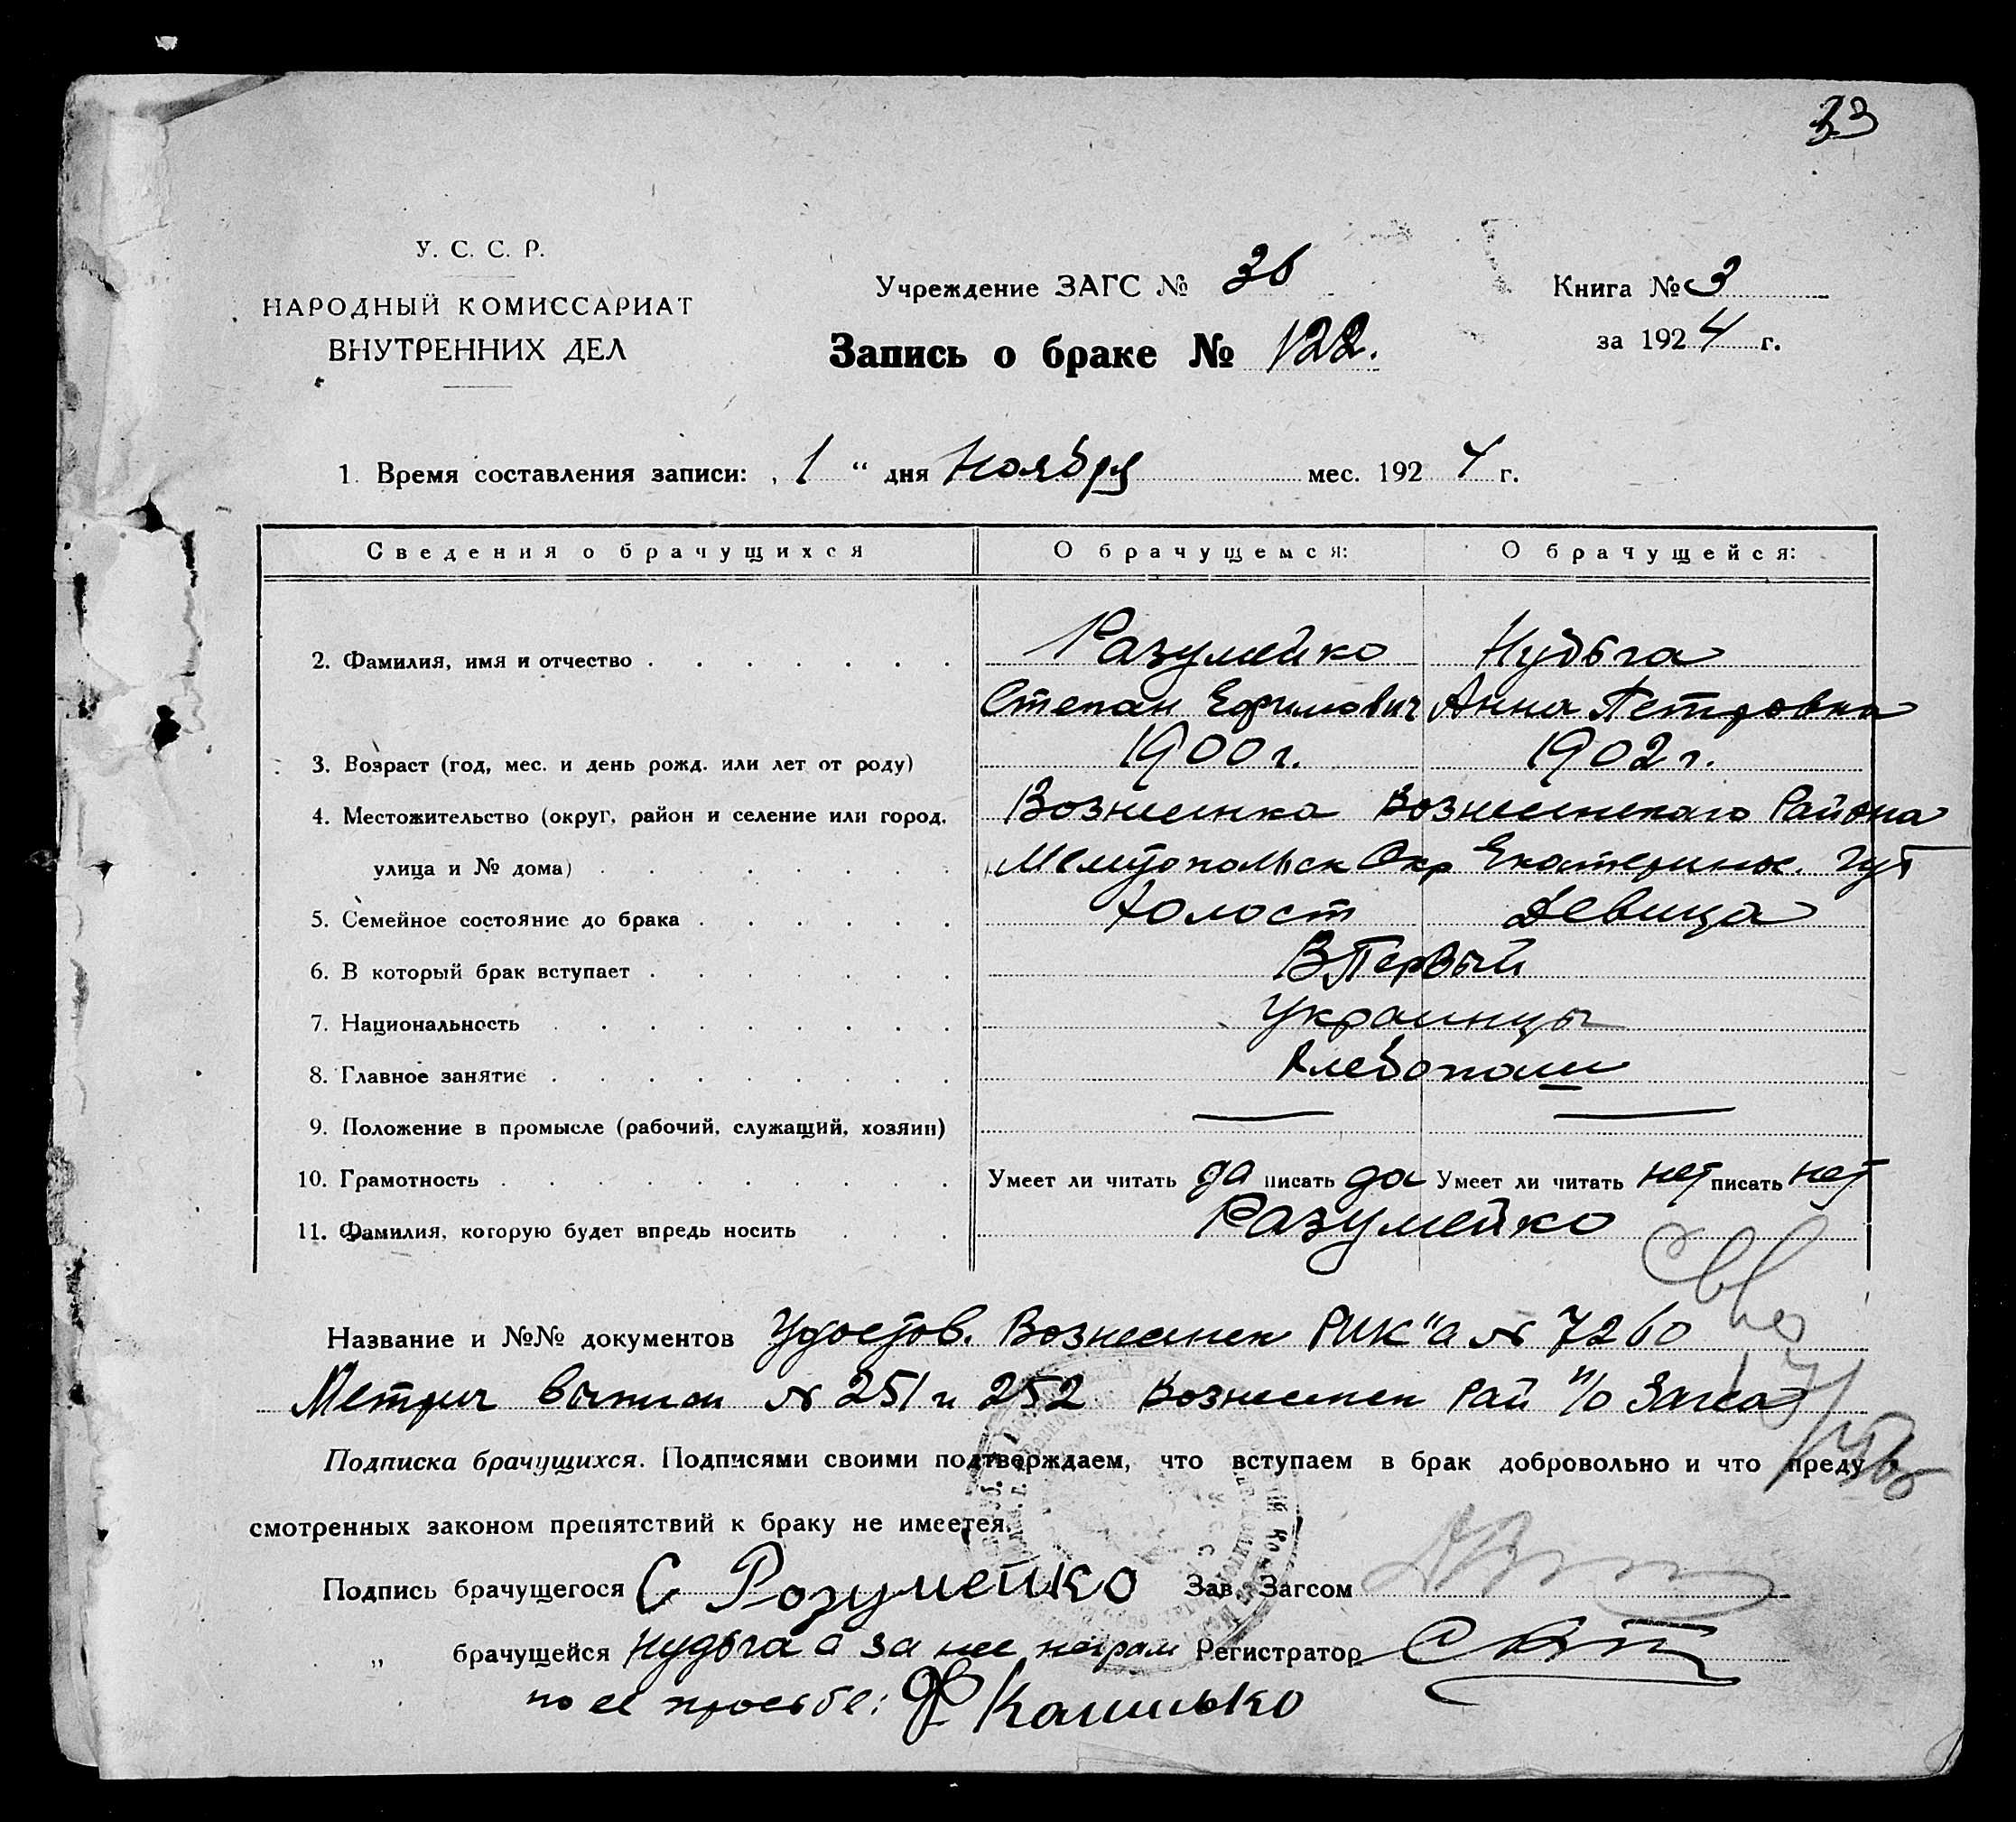 33
У. С. С. Р.
НАРОДНЫЙ КОМИССАРИАТ
ВНУТРЕННИХ ДЕЛ
Учреждение ЗАГС № 36
Запись о браке № 122.
Книга № 3
за 1924 г.
1. Время составления записи: „ 1 “ дня Ноября мес. 1924 г.
Сведения о брачущихся О брачущемся: О брачущейся:
2. Фамилия, имя и отчество . . . . . . . Разумейко Нудьга
Степан Ефимович Анна Петровна
3. Возраст (год, мес. и день рожд. или лет от роду) 1900 г. 1902 г.
4. Местожительство (округ, район и селение или город, Вознесенка Вознесенского Района
улица и № дома) . . . . . . . . Мелитопольск Окр Екатеринос. губ
5. Семейное состояние до брака . . . . . . Холост Девица
6. В который брак вступает . . . . . . . В Первый
7. Национальность . . . . . . . . . Украинцы
8. Главное занятие . . . . . . . . . Хлебопаш
9. Положение в промысле (рабочий, служащий, хозяин)
10. Грамотность . . . . . . . . . . Умеет ли читать да писать да Умеет ли читать нет писать нет
11. Фамилия, которую будет впредь носить . . . Разумейко
Название и №№ документов Удостов. Вознесенск РИК"а № 7260
Метрич выписи № 251 и 252 Вознесенск Рай п/о Загса
Подписка брачущихся. Подписями своими подтверждаем, что вступаем в брак добровольно и что преду
смотренных законом препятствий к браку не имеется.
Подпись брачущегося С Розумейко Зав. Загсом
„ брачущейся Нудьга а за нее неграм Регистратор
по ее просьбе: